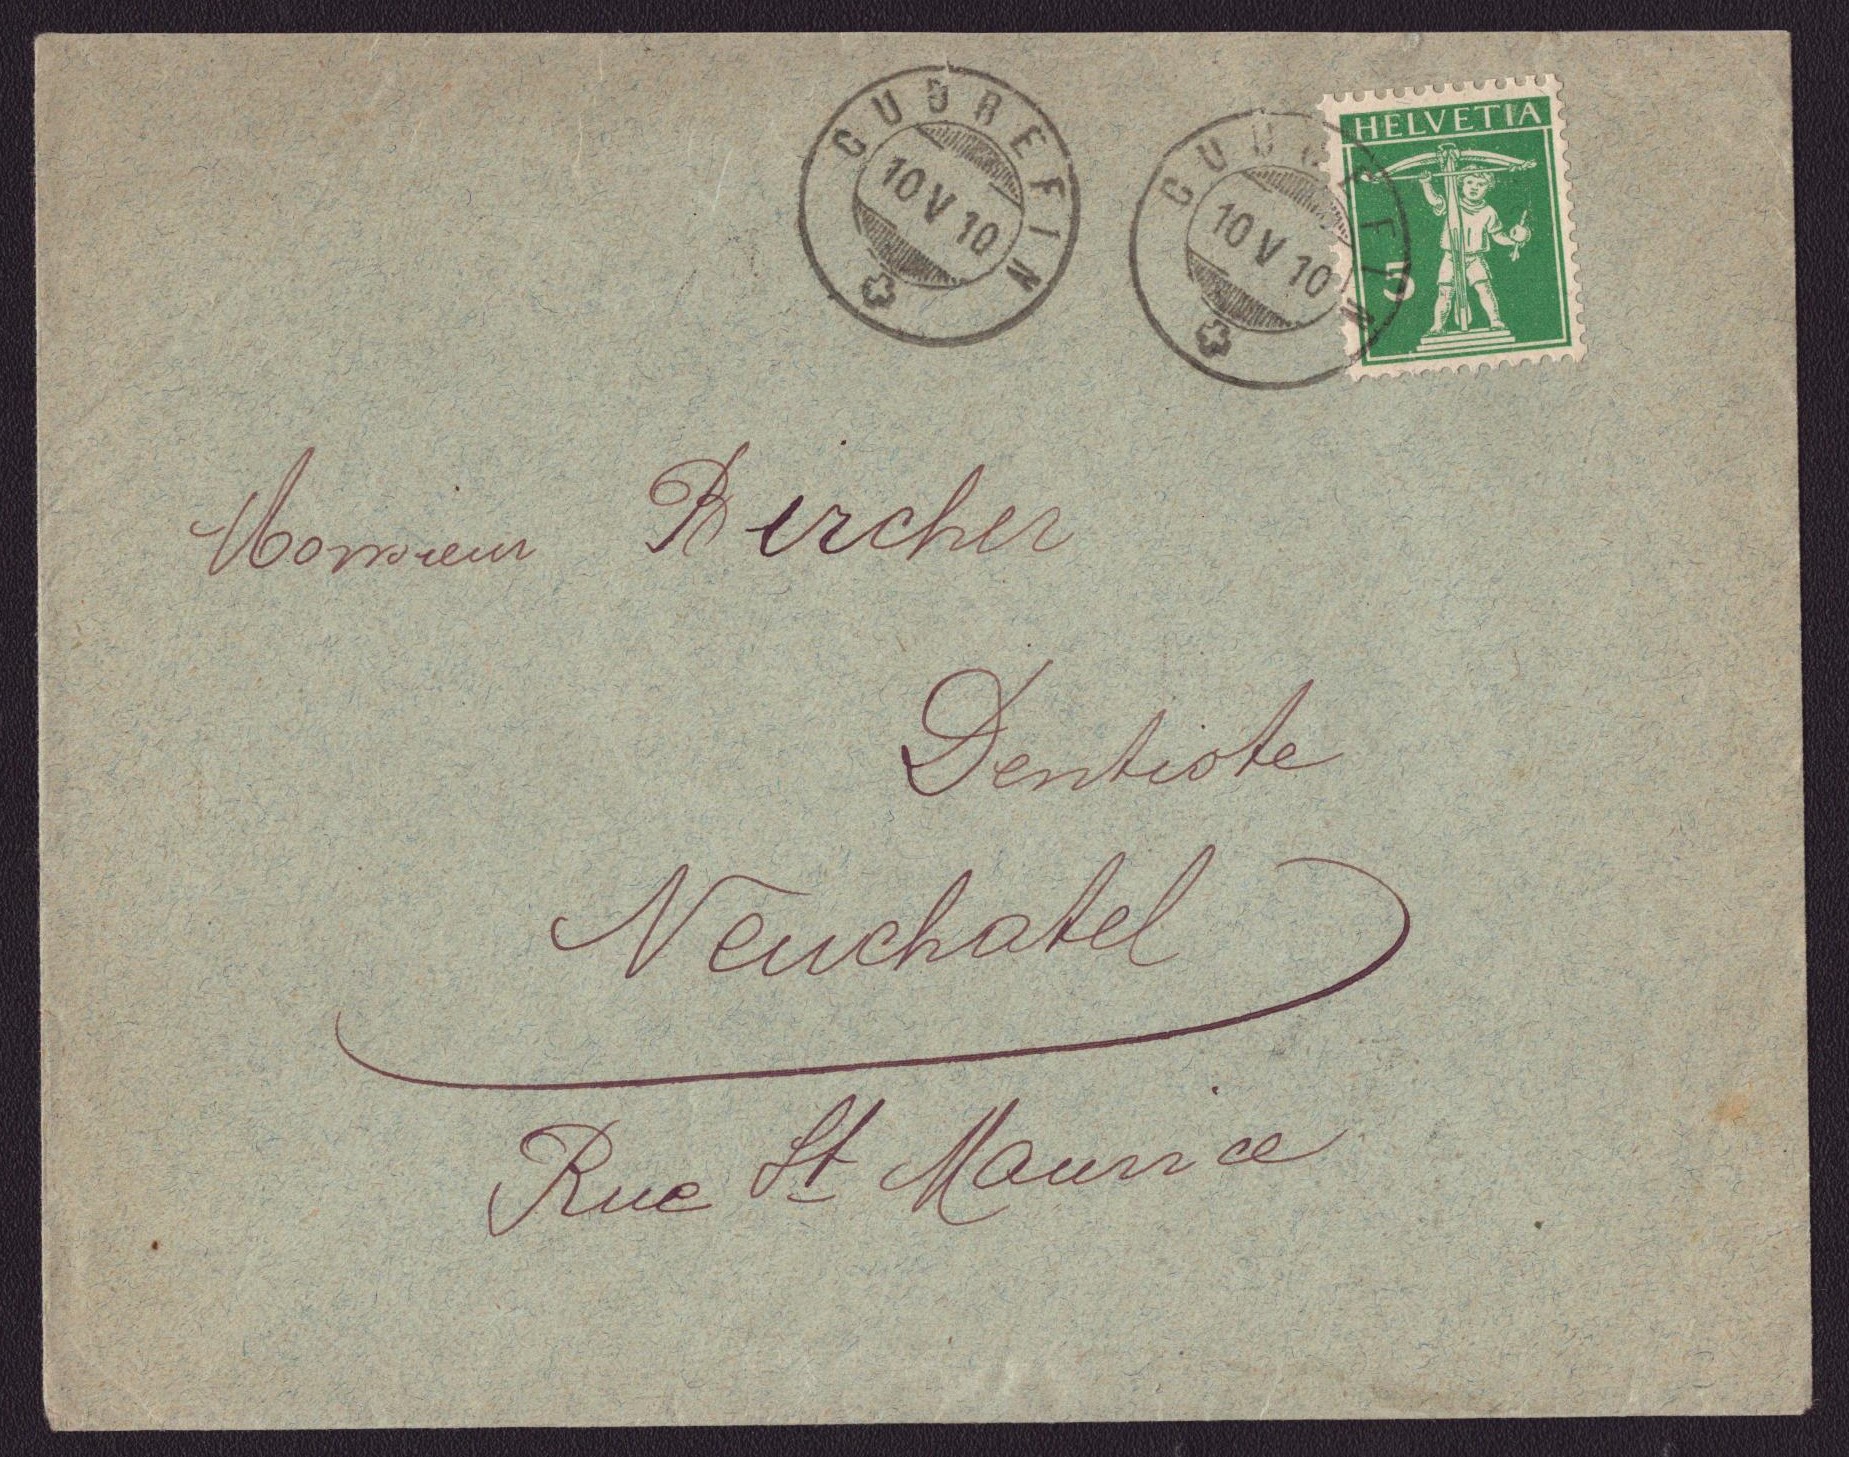 CUDREFIN
10 V 10
CUDREFIN
10 V 10
HELVETIA
5
Monsieur Bircher
Dentiste
Neuchatel
Rue St Maurice